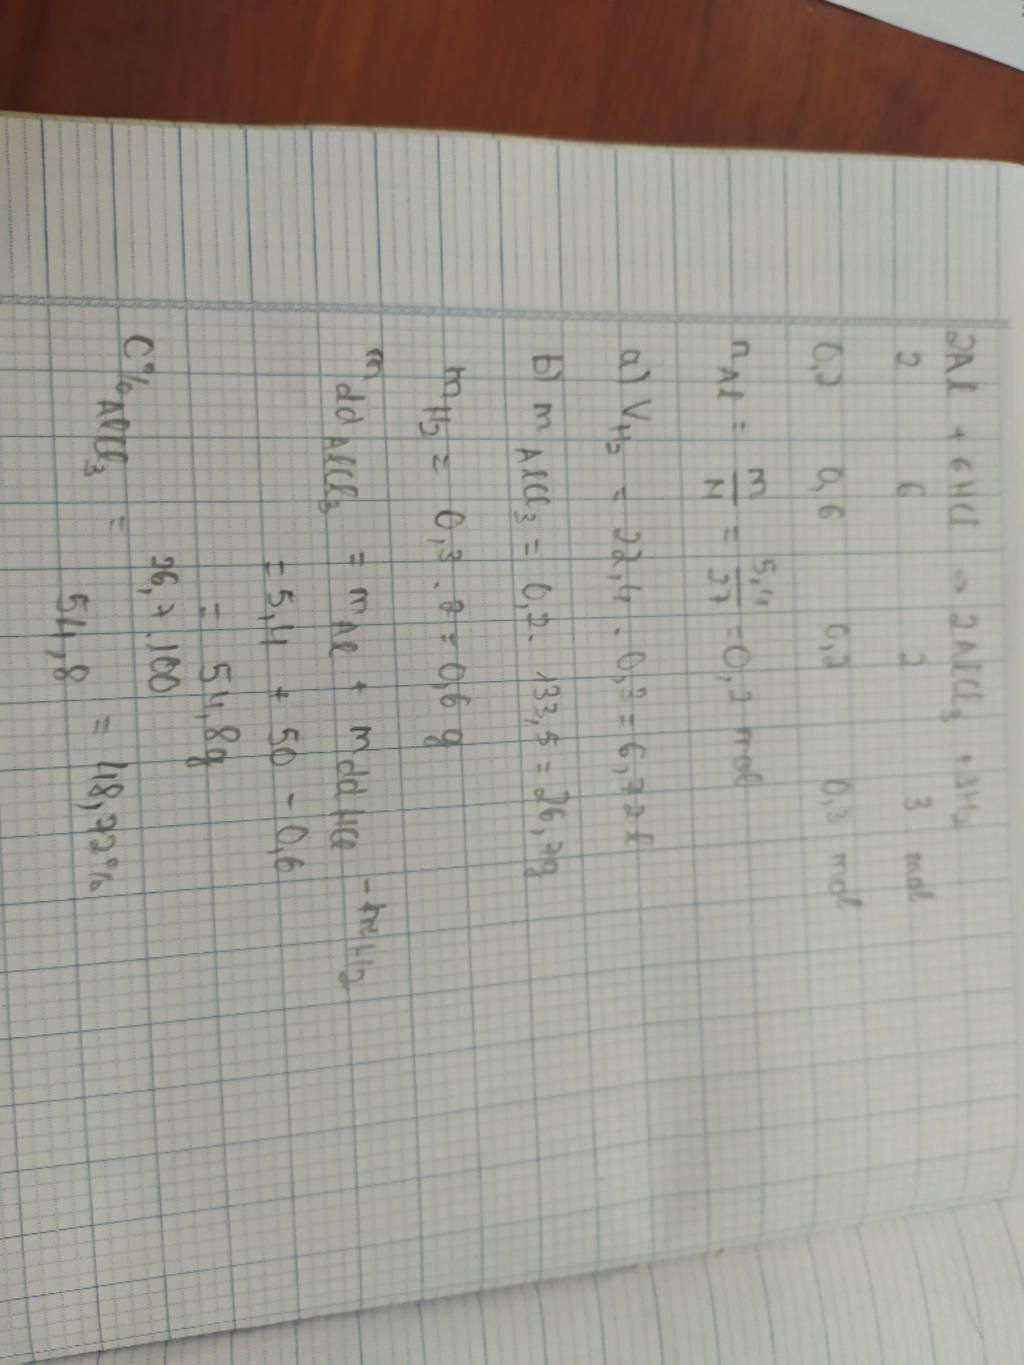 2Al + 6HCl → 2AlCl₃ + 3H₂
2 6 2 3 mol
0,2 0,6 0,2 0,3 mol
nAl = m/M = 5,4/27 = 0,2 mol
a) VH₂ = 22,4 . 0,3 = 6,72 l
b) mAlCl₃ = 0,2 . 133,5 = 26,7g
mH₂ = 0,3 . 2 = 0,6 g
mdd AlCl₃ = mAl + mdd HCl - mH₂
= 5,4 + 50 - 0,6
= 54,8g
C% AlCl₃ = 26,7.100/54,8 = 48,72%